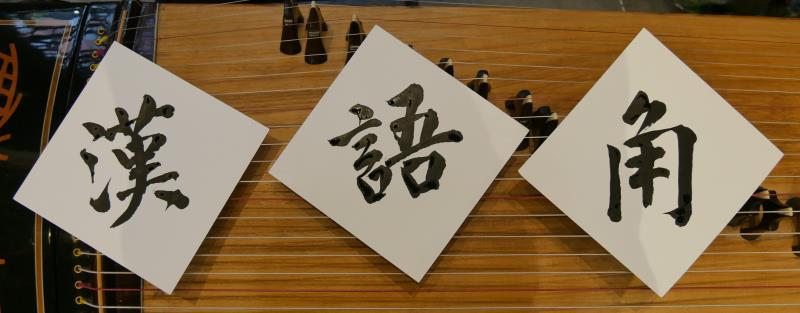 漢語角